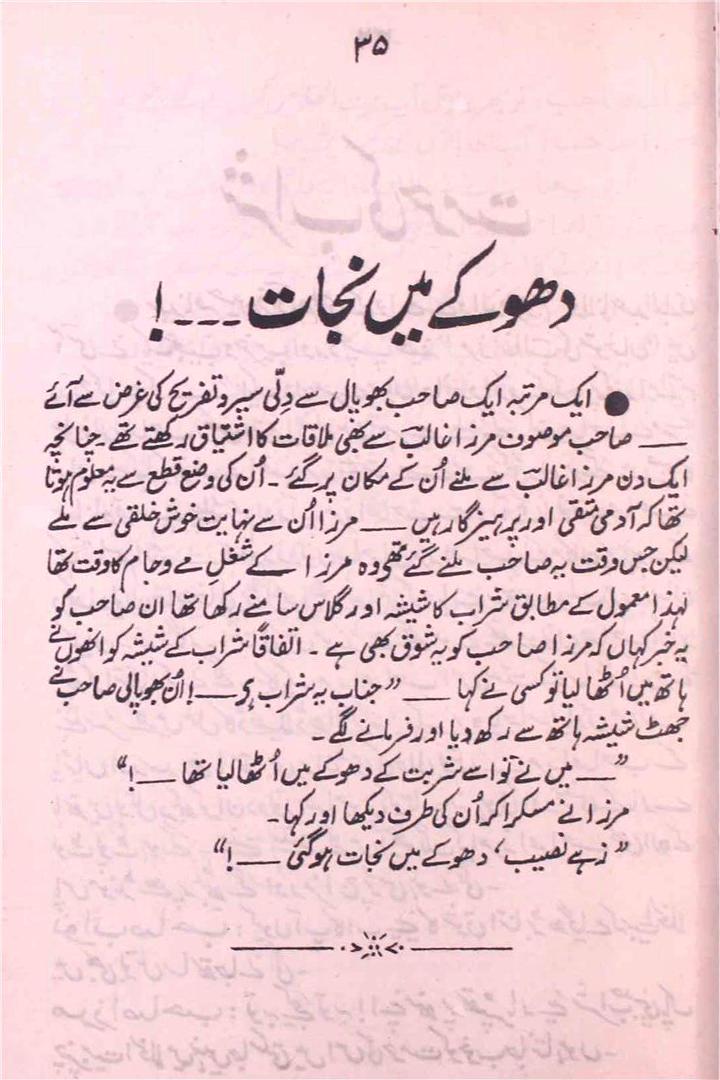 ۳۵
دھوکے میں نجات ۔۔۔!
● ایک مرتبہ ایک صاحب بھوپال سے دِلّی سیر و تفریح کی غرض سے آئے
— صاحب موصوف مرزا غالبؔ سے بھی ملاقات کا اشتیاق رکھتے تھے۔ چنانچہ
ایک دن مرزا غالبؔ سے ملنے اُن کے مکان پر گئے۔ اُن کی وضع قطع سے یہ معلوم ہوتا
تھا کہ آدمی متقی اور پرہیزگار ہیں — مرزا اُن سے نہایت خوش خلقی سے ملے
لیکن جس وقت یہ صاحب ملنے گئے تھے وہ مرزا کے شغلِ مے و جام کا وقت تھا
لہٰذا معمول کے مطابق شراب کا شیشہ اور گلاس سامنے رکھا تھا ان صاحب کو
یہ خبر کہاں کہ مرزا صاحب کو یہ شوق بھی ہے۔ اتفاقاً شراب کے شیشہ کو انھوں نے
ہاتھ میں اُٹھا لیا تو کسی نے کہا — "جناب یہ شراب ہے —! اُن بھوپالی صاحب نے
جھٹ شیشہ ہاتھ سے رکھ دیا اور فرمانے لگے۔
"— میں نے تو اسے شربت کے دھوکے میں اُٹھا لیا تھا —!"
مرزا نے مسکرا کر اُن کی طرف دیکھا اور کہا۔
"زہے نصیب، دھوکے میں نجات ہو گئی —!"